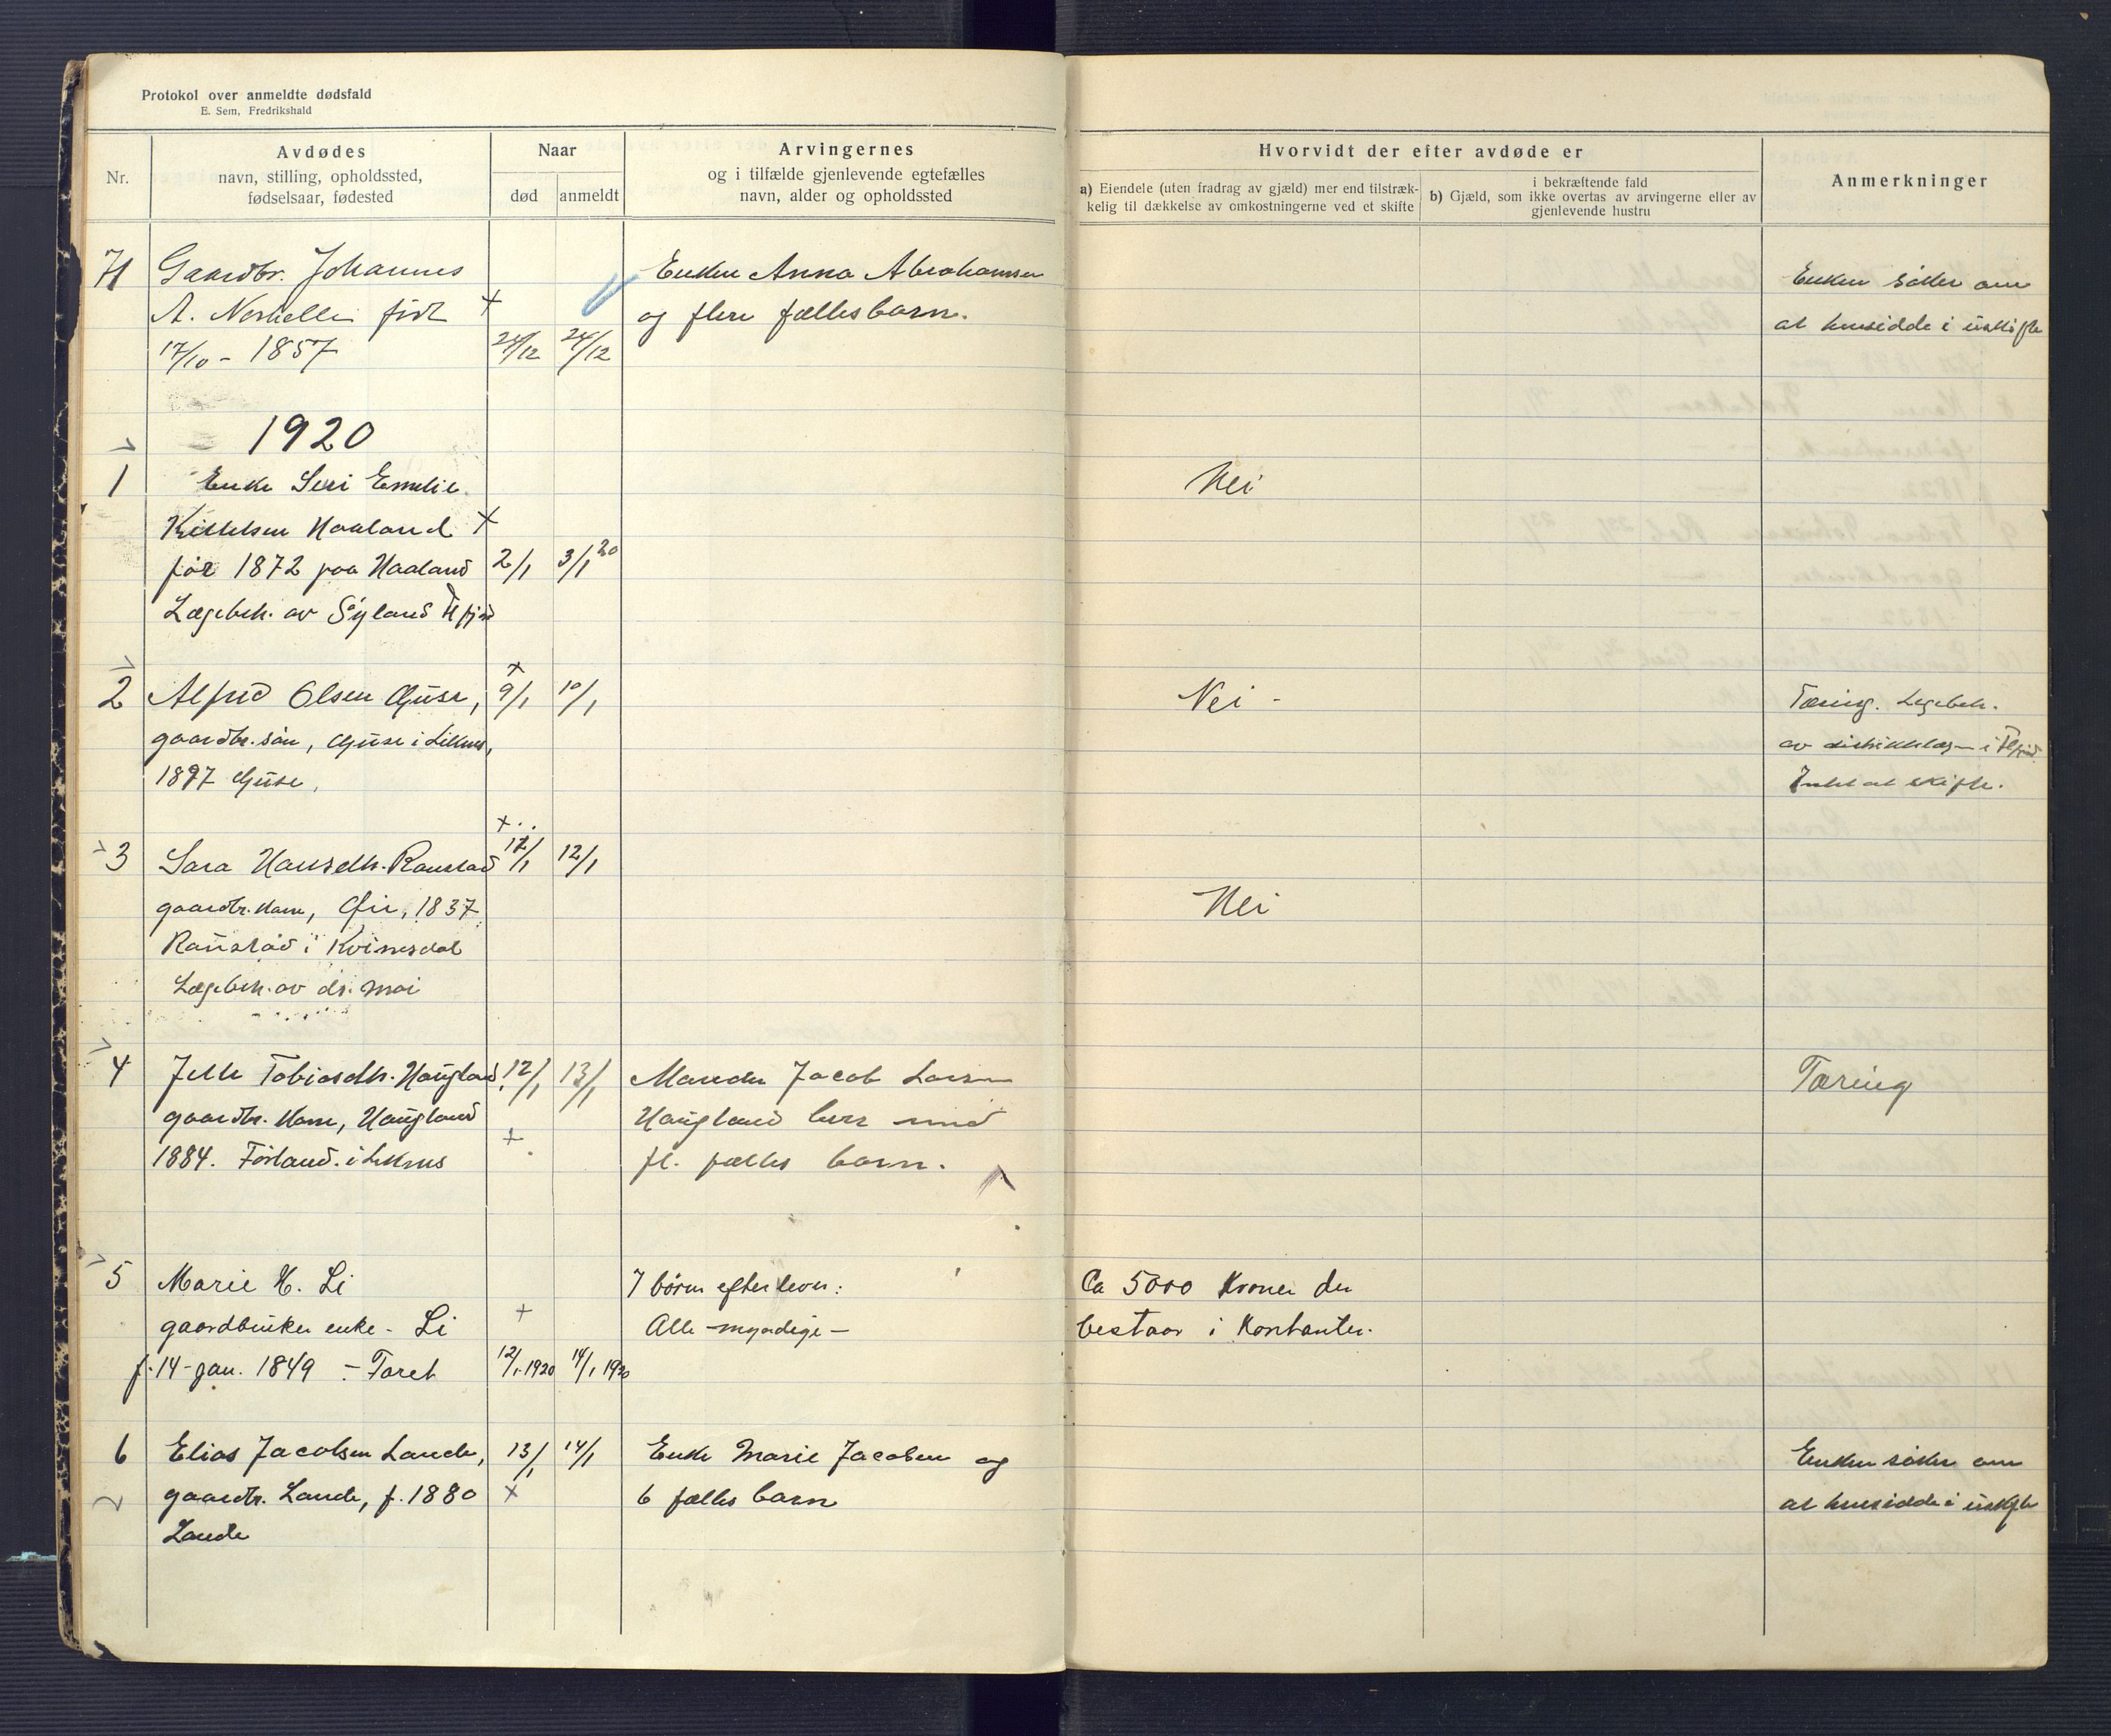 Protokol over anmeldte dødsfald
E. Sem, Fredrikshald
Nr.
Avdødes
navn, stilling, opholdssted,
fødselsaar, fødested
Naar
død
anmeldt
Arvingernes
og i tilfælde gjenlevende egtefælles
navn, alder og opholdssted
Hvorvidt der efter avdøde er
a) Eiendele (uten fradrag av gjæld) mer end tilstræk-
kelig til dækkelse av omkostningerne ved et skifte
i bekræftende fald
b) Gjæld, som ikke overtas av arvingerne eller av
gjenlevende hustru
Anmerkninger
71 Gaardbr. Johannes Enken Anna Abrahamsen Enken søker om
A. født + og flere fælles barn. at hensidde i uskifte
17/10 - 1857 24/12 24/12
1920
1 Enke Emelie Nei
Haaland +
1872 paa Haaland 2/1 3/1 20
Lægebeh. av
+
2 Alfred Olsen Gjuse, 9/1 10/1 Nei - Tæring. Legebeh.
gaardbr. søn, Gjuse i Liknes, av
1897 Gjuse, Intet at skifte.
+
3 Sara Hansdtr. 12/1 12/1
gaardbr. kone, 1837 Nei
i Kvinesdal
Lægebeh. av dr. Moi
4 Tobiasdtr. Haugland, 12/1 13/1 Manden Jacob Larsen Tæring
gaardbr. kone, Haugland + Haugland lever med
1884. Førland i Liknes fl. fælles barn.
5 Marie H. Li 7 børn efterlever: Ca 5000 Kroner der
gaardbruker enke - Li + Alle myndige - bestaar i Kontanter.
f. 14 - jan. 1849 - Faret 12/1 1920 14/1 1920
6 Elias Jacobsen Lande, 13/1 14/1 Enke Marie Jacobsen og Enken søker om
gaardbr. Lande, f. 1880 + 6 fælles barn at hensidde i uskifte
Lande